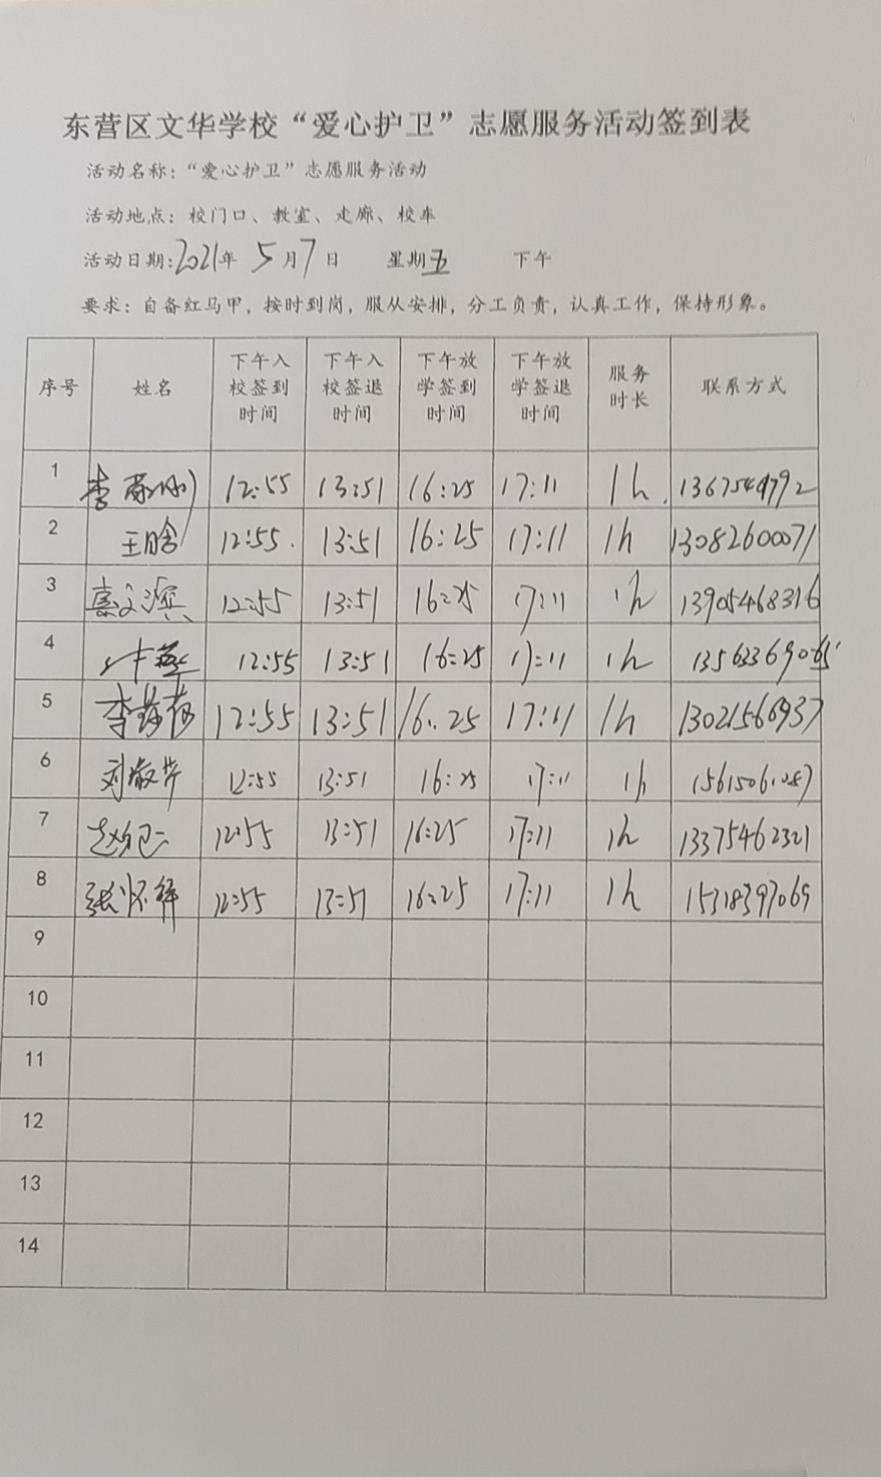 东营区文华学校“爱心护卫”志愿服务活动签到表
活动名称：“爱心护卫”志愿服务活动
活动地点：校门口、教室、走廊、校车
活动日期:2021年 5月7日 星期五 下午
要求：自备红马甲，按时到岗，服从安排，分工负责，认真工作，保持形象。
序号 姓名 下午入校签到时间 下午入校签退时间 下午放学签到时间 下午放学签退时间 服务时长 联系方式
1 李 12:55 13:51 16:25 17:11 1h
2 王晗 12:55 13:51 16:25 17:11 1h 13082600071
3 12:55 13:51 16:25 17:11 1h 13905468316
4 12:55 13:51 16:25 17:11 1h
5 李 12:55 13:51 16:25 17:11 1h 13021566937
6 刘 12:55 13:51 16:25 17:11 1h 15615061287
7 赵 12:55 13:51 16:25 17:11 1h 13375462321
8 张怀祥 12:55 13:51 16:25 17:11 1h 15318397069
9
10
11
12
13
14